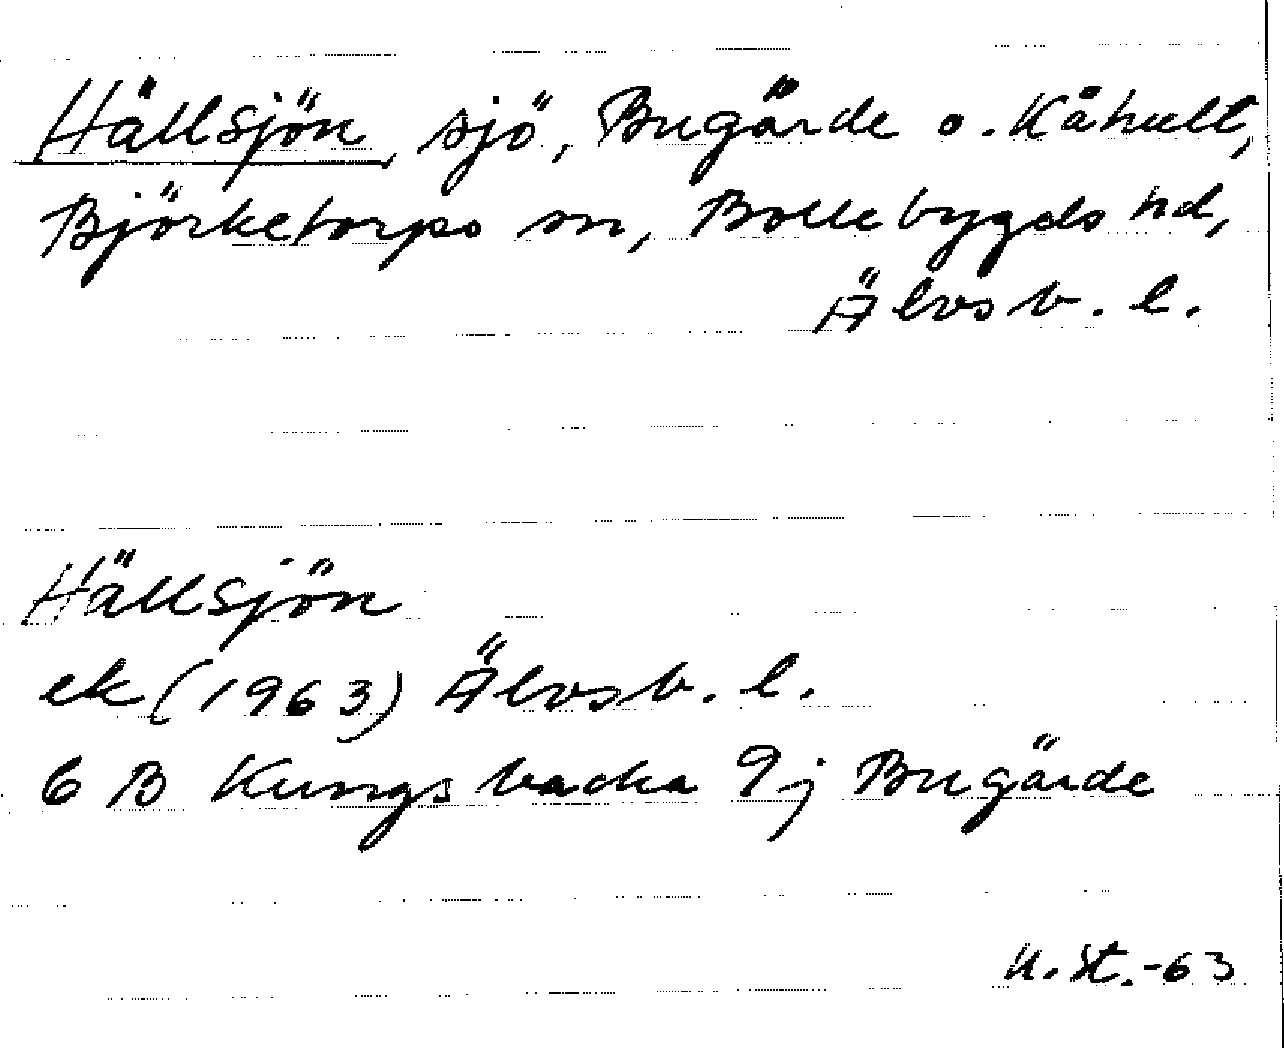 Hällsjön, sjö, Bugärde o. Kåhult,
Björketorps sn, Bollebygds hd,
Älvsb. l.
Hällsjön
ek (1963) Älvsb. l.
6 B Kungsbacka 9j Bugärde
U. St. -63